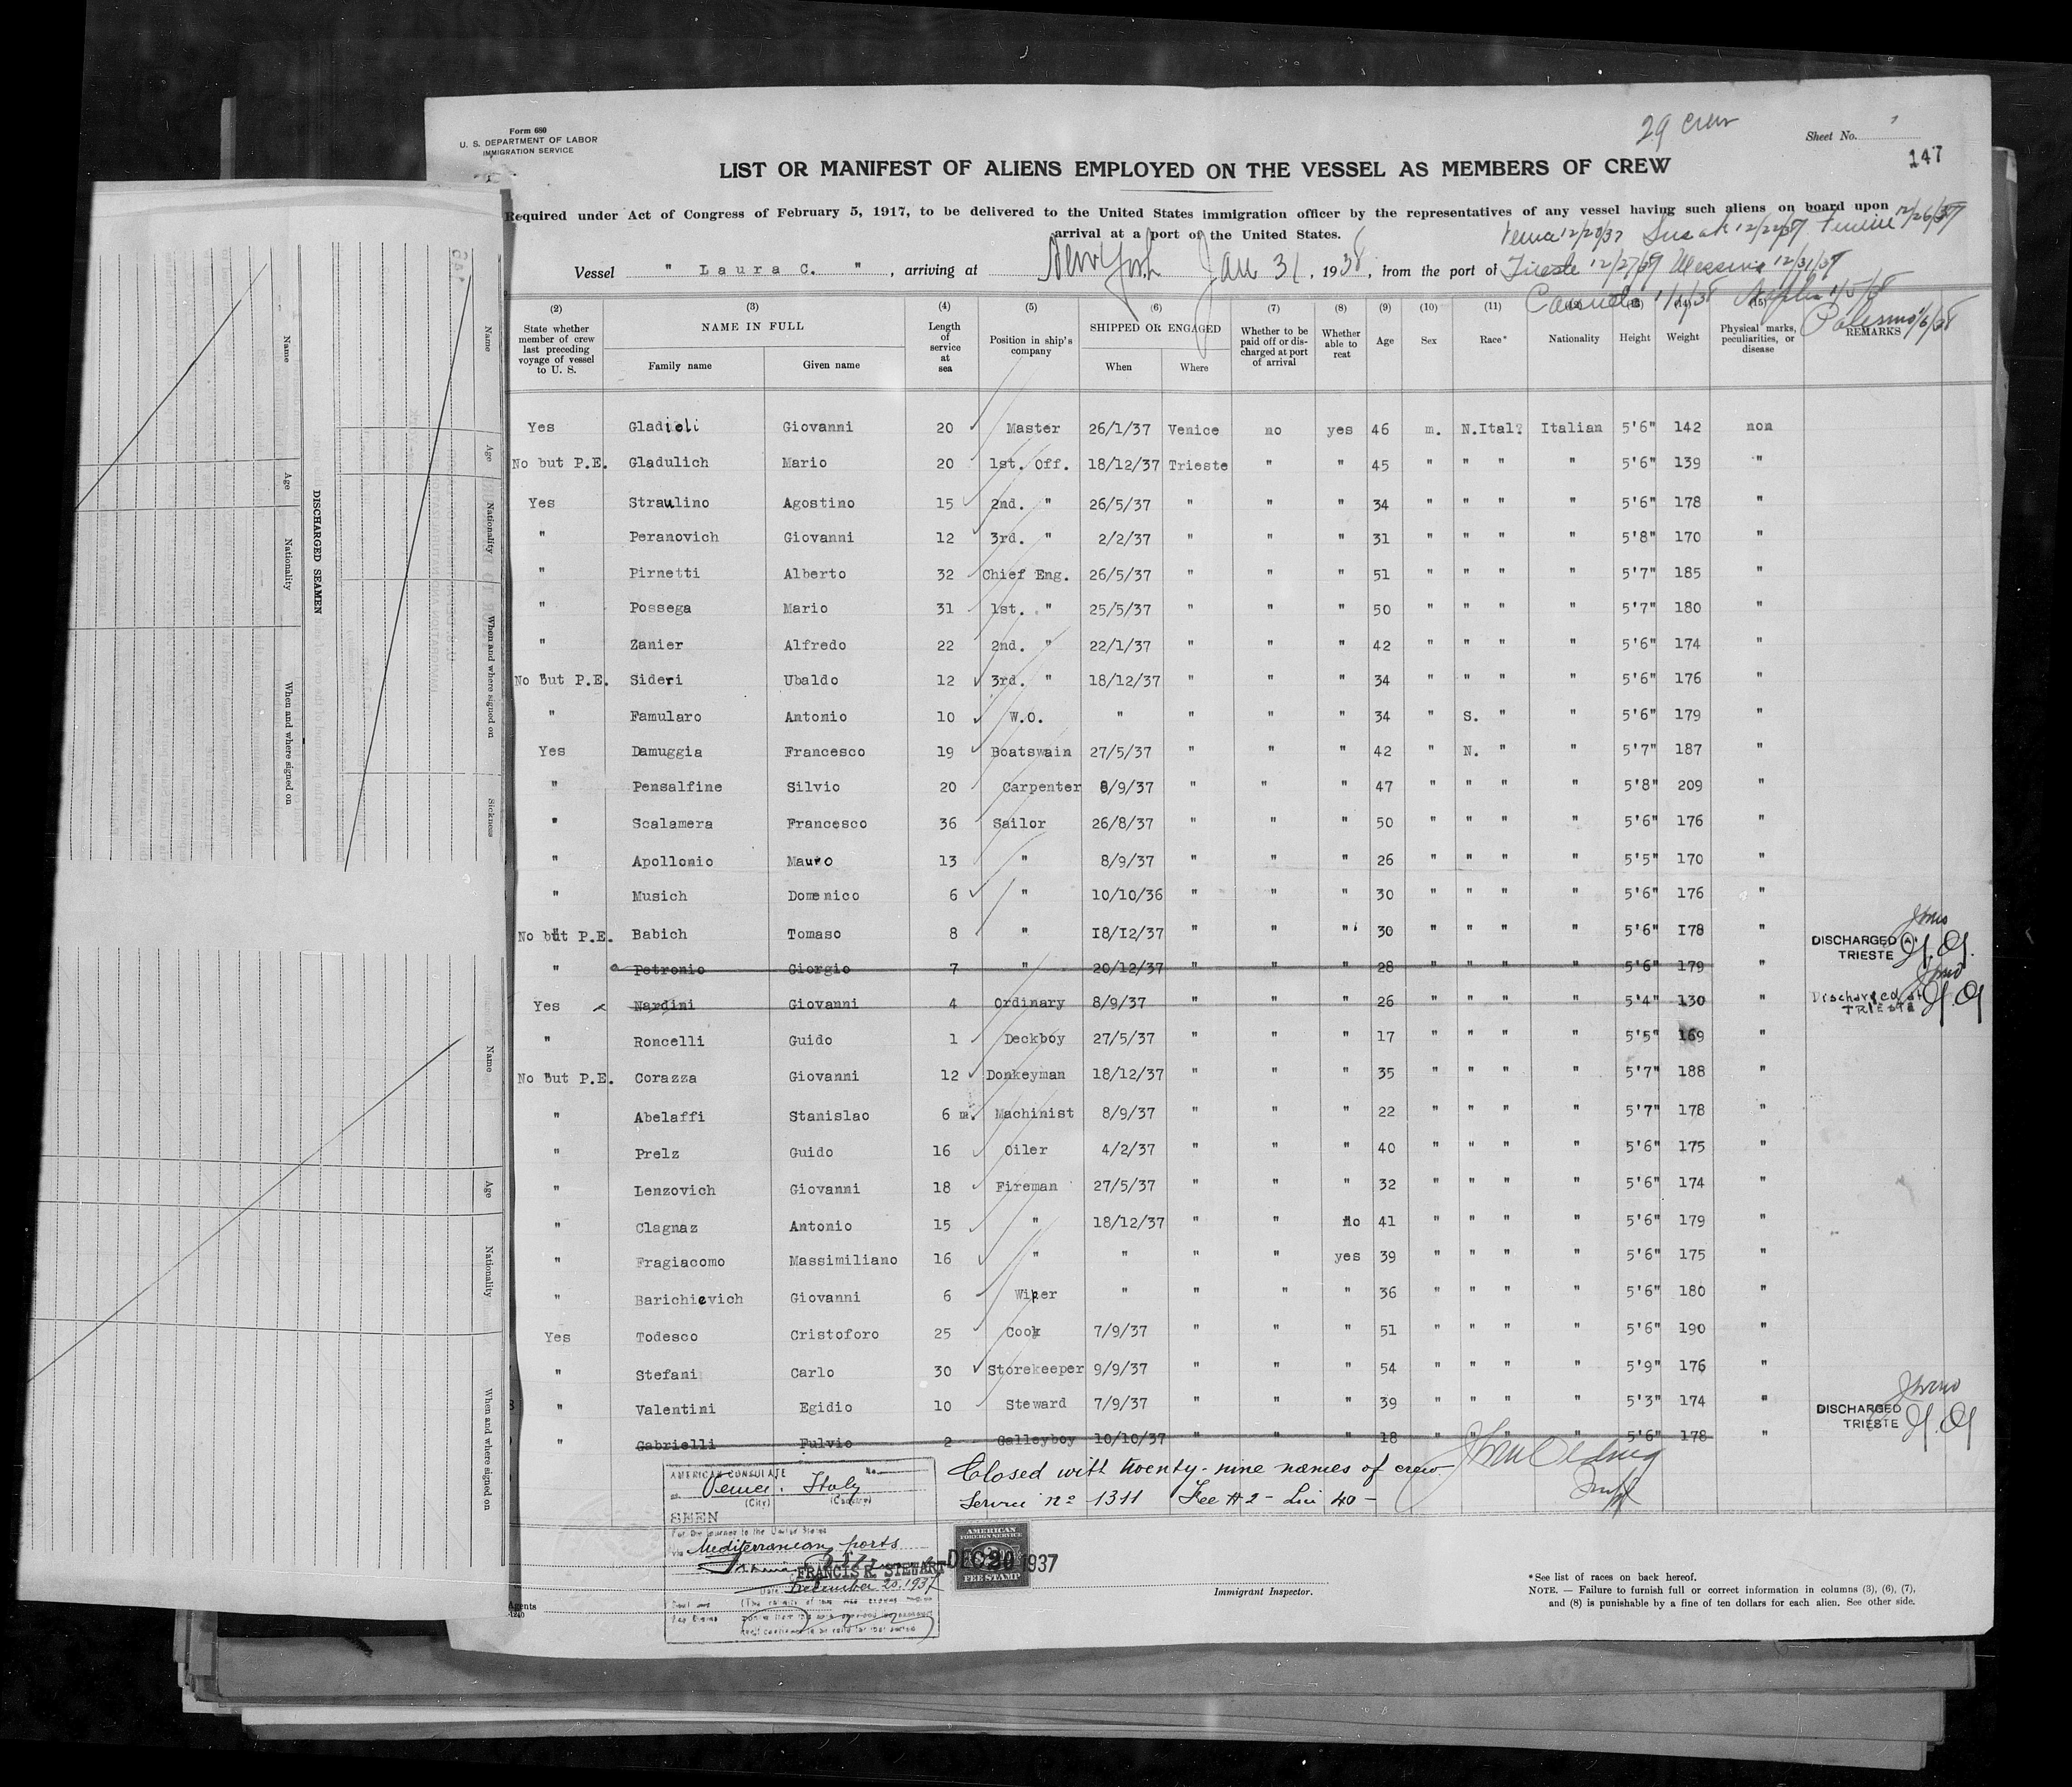 Form 680
U. S. DEPARTMENT OF LABOR
IMMIGRATION SERVICE
29 crew
Sheet No.
147
LIST OR MANIFEST OF ALIENS EMPLOYED ON THE VESSEL AS MEMBERS OF CREW
Required under Act of Congress of February 5, 1917, to be delivered to the United States immigration officer by the representatives of any vessel having such aliens on board upon
arrival at a port of the United States.
12/20/37 Susak 12/22/37 Fiume 12/26/37
Vessel " Laura C. " , arriving at New York Jan 31 , 1938 , from the port of Trieste 12/27/37 Messina 12/31/37
1/1/38 Naples 1/5/38
Palermo 1/6/38
(2) (3) (4) (5) (6) (7) (8) (9) (10) (11) (12) (13) (14) (15)
State whether member of crew last preceding voyage of vessel to U. S. NAME IN FULL Family name Given name Length of service at sea Position in ship's company SHIPPED OR ENGAGED When Where Whether to be paid off or discharged at port of arrival Whether able to reat Age Sex Race* Nationality Height Weight Physical marks, peculiarities, or disease REMARKS
Yes Gladioli Giovanni 20 Master 26/1/37 Venice no yes 46 m. N.Ital. Italian 5'6" 142 non
No but P.E. Gladulich Mario 20 1st. Off. 18/12/37 Trieste " " 45 " " " " 5'6" 139 "
Yes Straulino Agostino 15 2nd. " 26/5/37 " " " 34 " " " " 5'6" 178 "
" Peranovich Giovanni 12 3rd. " 2/2/37 " " " 31 " " " " 5'8" 170 "
" Pirnetti Alberto 32 Chief Eng. 26/5/37 " " " 51 " " " " 5'7" 185 "
" Possega Mario 31 1st. " 25/5/37 " " " 50 " " " " 5'7" 180 "
" Zanier Alfredo 22 2nd. " 22/1/37 " " " 42 " " " " 5'6" 174 "
No but P.E. Sideri Ubaldo 12 3rd. " 18/12/37 " " " 34 " " " " 5'6" 176 "
" Famularo Antonio 10 W.O. " " " " 34 " S. " " 5'6" 179 "
Yes Damuggia Francesco 19 Boatswain 27/5/37 " " " 42 " N. " " 5'7" 187 "
" Pensalfine Silvio 20 Carpenter 8/9/37 " " " 47 " " " " 5'8" 209 "
" Scalamera Francesco 36 Sailor 26/8/37 " " " 50 " " " " 5'6" 176 "
" Apollonio Mauro 13 " 8/9/37 " " " 26 " " " " 5'5" 170 "
" Musich Domenico 6 " 10/10/36 " " " 30 " " " " 5'6" 176 "
No but P.E. Babich Tomaso 8 " 18/12/37 " " " 30 " " " " 5'6" 178 "
" Petronio Giorgio 7 " 20/12/37 " " " 28 " " " " 5'6" 179 " DISCHARGED TRIESTE
Yes Nardini Giovanni 4 Ordinary 8/9/37 " " " 26 " " " " 5'4" 130 " Discharged at TRIESTE
" Roncelli Guido 1 Deckboy 27/5/37 " " " 17 " " " " 5'5" 169 "
No but P.E. Corazza Giovanni 12 Donkeyman 18/12/37 " " " 35 " " " " 5'7" 188 "
" Abelaffi Stanislao 6 m. Machinist 8/9/37 " " " 22 " " " " 5'7" 178 "
" Prelz Guido 16 Oiler 4/2/37 " " " 40 " " " " 5'6" 175 "
" Lenzovich Giovanni 18 Fireman 27/5/37 " " " 32 " " " " 5'6" 174 "
" Clagnaz Antonio 15 " 18/12/37 " " no 41 " " " " 5'6" 179 "
" Fragiacomo Massimiliano 16 " " " " yes 39 " " " " 5'6" 175 "
" Barichievich Giovanni 6 Wiper " " " " 36 " " " " 5'6" 180 "
Yes Todesco Cristoforo 25 Cook 7/9/37 " " " 51 " " " " 5'6" 190 "
" Stefani Carlo 30 Storekeeper 9/9/37 " " " 54 " " " " 5'9" 176 "
" Valentini Egidio 10 Steward 7/9/37 " " " 39 " " " " 5'3" 174 "
" Gabrielli Fulvio 2 Galleyboy 10/10/37 " " " 18 " " " " 5'6" 178 " DISCHARGED TRIESTE
Closed with twenty-nine names of crew
Service no 1311 Fee # 2 - Lire 40 -
AMERICAN CONSULATE No.
at Venice, Italy
(City) (Country)
SEEN
For the journey to the United States
via Mediterranean ports
FRANCIS R. STEWART
Date December 20, 1937
AMERICAN
FOREIGN SERVICE
FEE STAMP
DEC 20 1937
Agents
Immigrant Inspector.
*See list of races on back hereof.
NOTE. — Failure to furnish full or correct information in columns (3), (6), (7),
and (8) is punishable by a fine of ten dollars for each alien. See other side.
DISCHARGED SEAMEN
Name Age Nationality When and where signed on
Name Age Nationality When and where signed on Sickness
Name Age Nationality When and where signed on